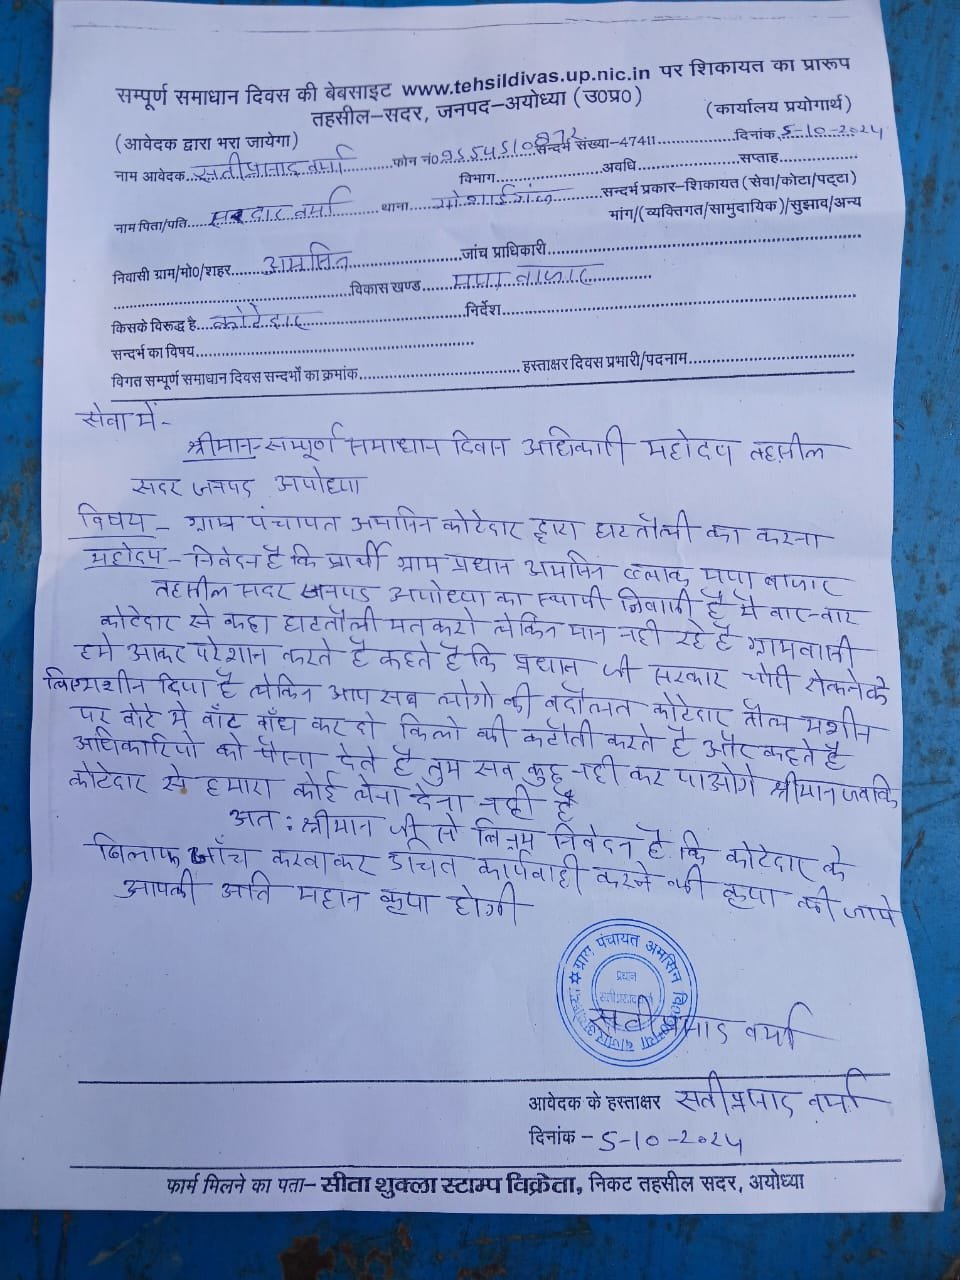 सम्पूर्ण समाधान दिवस की बेबसाइट www.tehsildivas.up.nic.in पर शिकायत का प्रारूप
तहसील–सदर, जनपद–अयोध्या (उ0प्र0)
(आवेदक द्वारा भरा जायेगा) (कार्यालय प्रयोगार्थ)
नाम आवेदक सतीप्रसाद वर्मा फोन नं0 सन्दर्भ संख्या–47411 दिनांक 5-10-2024
विभाग अवधि सप्ताह
नाम पिता/पति सरदार वर्मा थाना गोशाईगंज सन्दर्भ प्रकार–शिकायत (सेवा/कोटा/पट्टा)
मांग/(व्यक्तिगत/सामुदायिक)/सुझाव/अन्य
निवासी ग्राम/मो0/शहर अमसिन जांच प्राधिकारी
विकास खण्ड मया बाजार
किसके विरूद्ध है कोटेदार निर्देश
सन्दर्भ का विषय
विगत सम्पूर्ण समाधान दिवस सन्दर्भों का क्रमांक हस्ताक्षर दिवस प्रभारी/पदनाम
सेवा में-
श्रीमान-सम्पूर्ण समाधान दिवस अधिकारी महोदय तहसील
सदर जनपद अयोध्या
विषय - ग्राम पंचायत अमसिन कोटेदार द्वारा घटतौली का करना
महोदय - निवेदन है कि प्रार्थी ग्राम प्रधान अमसिन ब्लाक मया बाजार
तहसील सदर जनपद अयोध्या का स्थायी निवासी है मै बार-बार
कोटेदार से कहा घटतौली मत करो लेकिन मान नही रहे है ग्रामवासी
हमे आकर परेशान करते है कहते है कि प्रधान जी सरकार चोरी रोकने के
लिए मशीन दिया है लेकिन आप सब लोगो की बदौलत कोटेदार तौल मशीन
पर बोरे मे बाँट बाँध कर दो किलो की कटौती करते है और कहते है
अधिकारियो को पैसा देते है तुम सब कुछ नही कर पाओगे श्रीमान जबकि
कोटेदार से हमारा कोई लेना देना नही है
अत: श्रीमान जी से विनम्र निवेदन है कि कोटेदार के
खिलाफ जाँच करवाकर उचित कार्यवाही करने की कृपा की जाये
आपकी अति महान कृपा होगी
ग्राम पंचायत अमसिन वि0ख0 मया बाजार अयोध्या
प्रधान
सतीप्रसाद वर्मा
सती प्रसाद वर्मा
आवेदक के हस्ताक्षर सतीप्रसाद वर्मा
दिनांक – 5-10-2024
फार्म मिलने का पता– सीता शुक्ला स्टाम्प विक्रेता, निकट तहसील सदर, अयोध्या